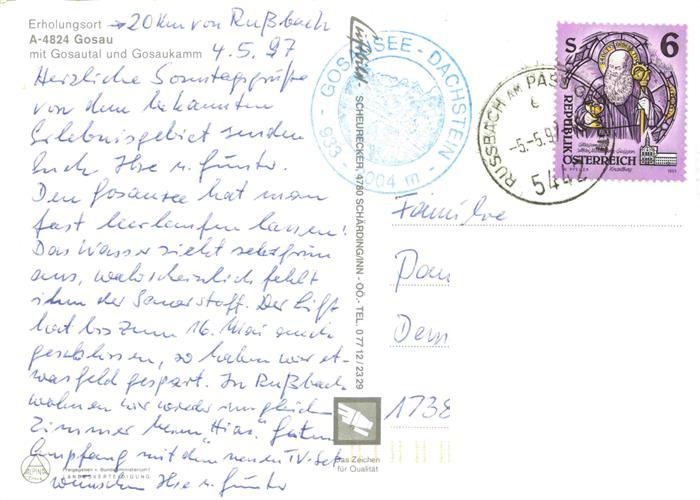 Erholungsort → 20 km von Rußbach
A-4824 Gosau
mit Gosautal und Gosaukamm 4.5.97
Herzliche Sonntagsgrüße
von dem bekannten
Erlebnisgebiet senden
Euch Ilse u. Günter
Den Gosausee hat man
fast leerlaufen lassen!
Das Wasser sieht sehr grün
aus, wahrscheinlich fehlt
ihm der Sauerstoff. Der Lift
hat bis zum 16. Mai auch
geschlossen, so haben wir et-
was Geld gespart. In Rußbach
wohnen wir wieder im gleichen
Zimmer beim "Hias". Guten
Empfang mit dem neuen TV-Set
wünschen Ilse u. Günter
ALPINA
Druck
Freigegeben v. Bundesministerium f.
LANDESVERTEIDIGUNG
Luftbild
SCHEURECKER, 4780 SCHÄRDING/INN - OÖ.- TEL. 0 77 12 / 23 29
Das Zeichen
für Qualität
GOSAUSEE - DACHSTEIN
933 3004 m
RUSSBACH AM PASS
-5.-5.97
5442
S 6
REPUBLIK
ÖSTERREICH
Familie
Dem
1738